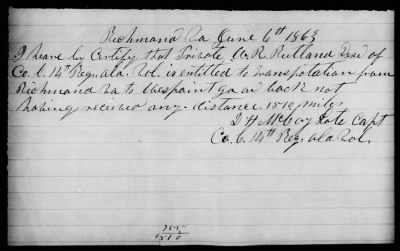 Richmond Va June 6th 1863
I heare by Certify that Private W. R. Rutland of
Co. C. 14th Reg Ala. Vol. is entitled to Transpotation from
Richmond Va to Westpoint Ga or back not
having received any. distance 1510 miles
D H McCoy Capt
Co. C. 14th Reg Ala Vol.
755
1510